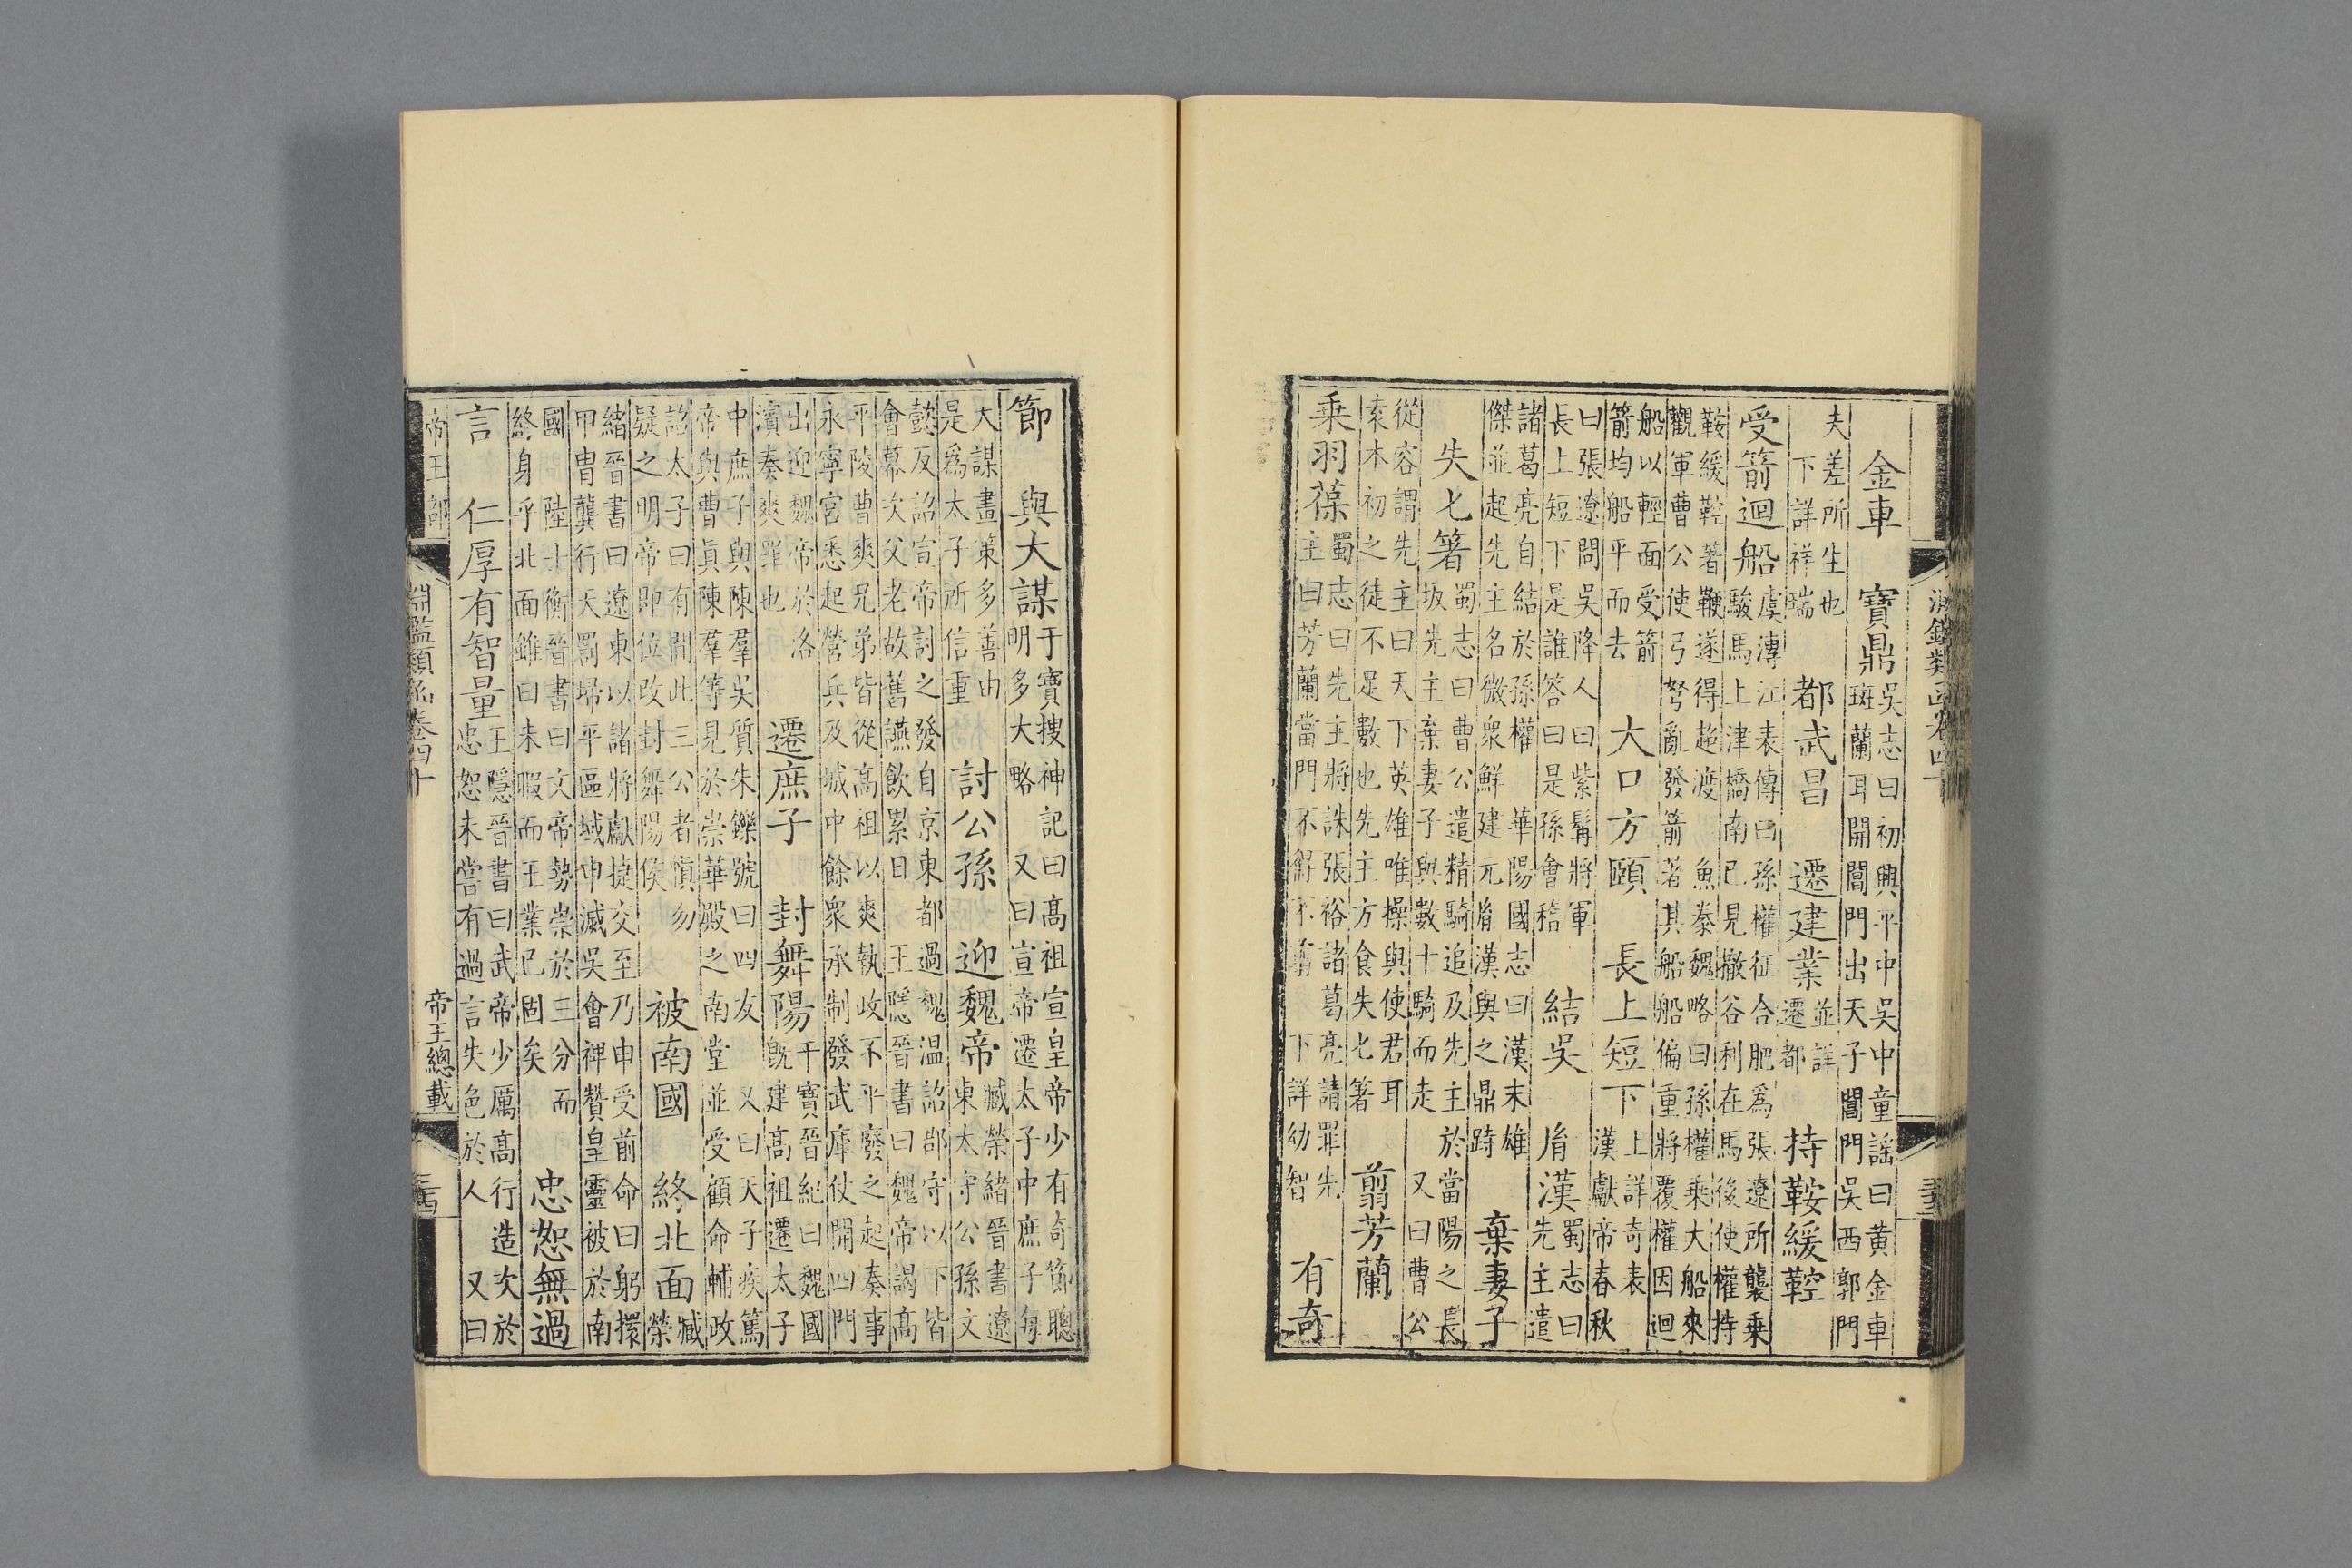 淵鑑類函卷四十
金車 寶鼎 吳志曰初興平中吳中童謠曰黃金車
班蘭耳開閶門出天子閶門吳西郭門
夫差所生也
下詳祥瑞 都武昌 遷建業 並詳遷都 持鞍緩鞚
受箭迴船 虞溥江表傳曰孫權征合肥為張遼所襲乘
駿馬上津橋南已見撤谷利在馬後使權持
鞍緩鞚著鞭遂得超渡 魚豢魏略曰孫權乘大船來
觀軍曹公使弓弩亂發箭著其船船偏重將覆權因迴
船以輕面受箭
箭均船平而去 大口方頤 長上短下 上詳奇表
漢獻帝春秋
曰張遼問吳降人曰紫髯將軍
長上短下是誰答曰是孫會稽 結吳 胤漢 蜀志曰
先主遣
諸葛亮自結於孫權 華陽國志曰漢末雄
傑並起先主名微衆鮮建元胤漢與之鼎跱 棄妻子
失匕箸 蜀志曰曹公遣精騎追及先主於當陽之長
坂先主棄妻子與數十騎而走 又曰曹公
從容謂先主曰天下英雄唯操與使君耳
袁本初之徒不足數也先主方食失匕箸 翦芳蘭
乘羽葆 蜀志曰先主將誅張裕諸葛亮請罪先
主曰芳蘭當門不得不翦 下詳幼智 有奇
節 與大謀 干寶搜神記曰高祖宣皇帝少有奇節聰
明多大略 又曰宣帝遷太子中庶子每
大謀畫策多善由
是爲太子所信重 討公孫 迎魏帝 臧榮緒晉書遼
東太守公孫文
懿反詔宣帝討之發自京東都過魏溫詔郡守以下皆
會幕次父老故舊讌飲累日 王隱晉書曰魏帝謁高
平陵曹爽兄弟皆從高祖以爽執政不平廢之起奏事
永寧宮悉起營兵及城中餘衆承制發武庫仗開四門
出迎魏帝於洛
濱奏爽罪也 遷庶子 封舞陽 干寶晉紀曰魏國
既建高祖遷太子
中庶子與陳羣吳質朱鑠號曰四友 又曰天子疾篤
帝與曹真陳羣等見於崇華殿之南堂並受顧命輔政
詔太子曰有間此三公者慎勿
疑之明帝即位改封舞陽侯 被南國 終北面 臧
榮
緒晉書曰遼東以諸將獻捷交至乃申受前命曰躬擐
甲冑龔行天罰埽平區域申滅吳會裨贊皇靈被於南
國 陸士衡晉書曰文帝勢崇於三分而
終身乎北面雖曰未暇而王業已固矣 忠恕無過
言 仁厚有智量 王隱晉書曰武帝少厲高行造次於
忠恕未嘗有過言失色於人 又曰
帝王部 淵鑑類函卷四十 帝王總載